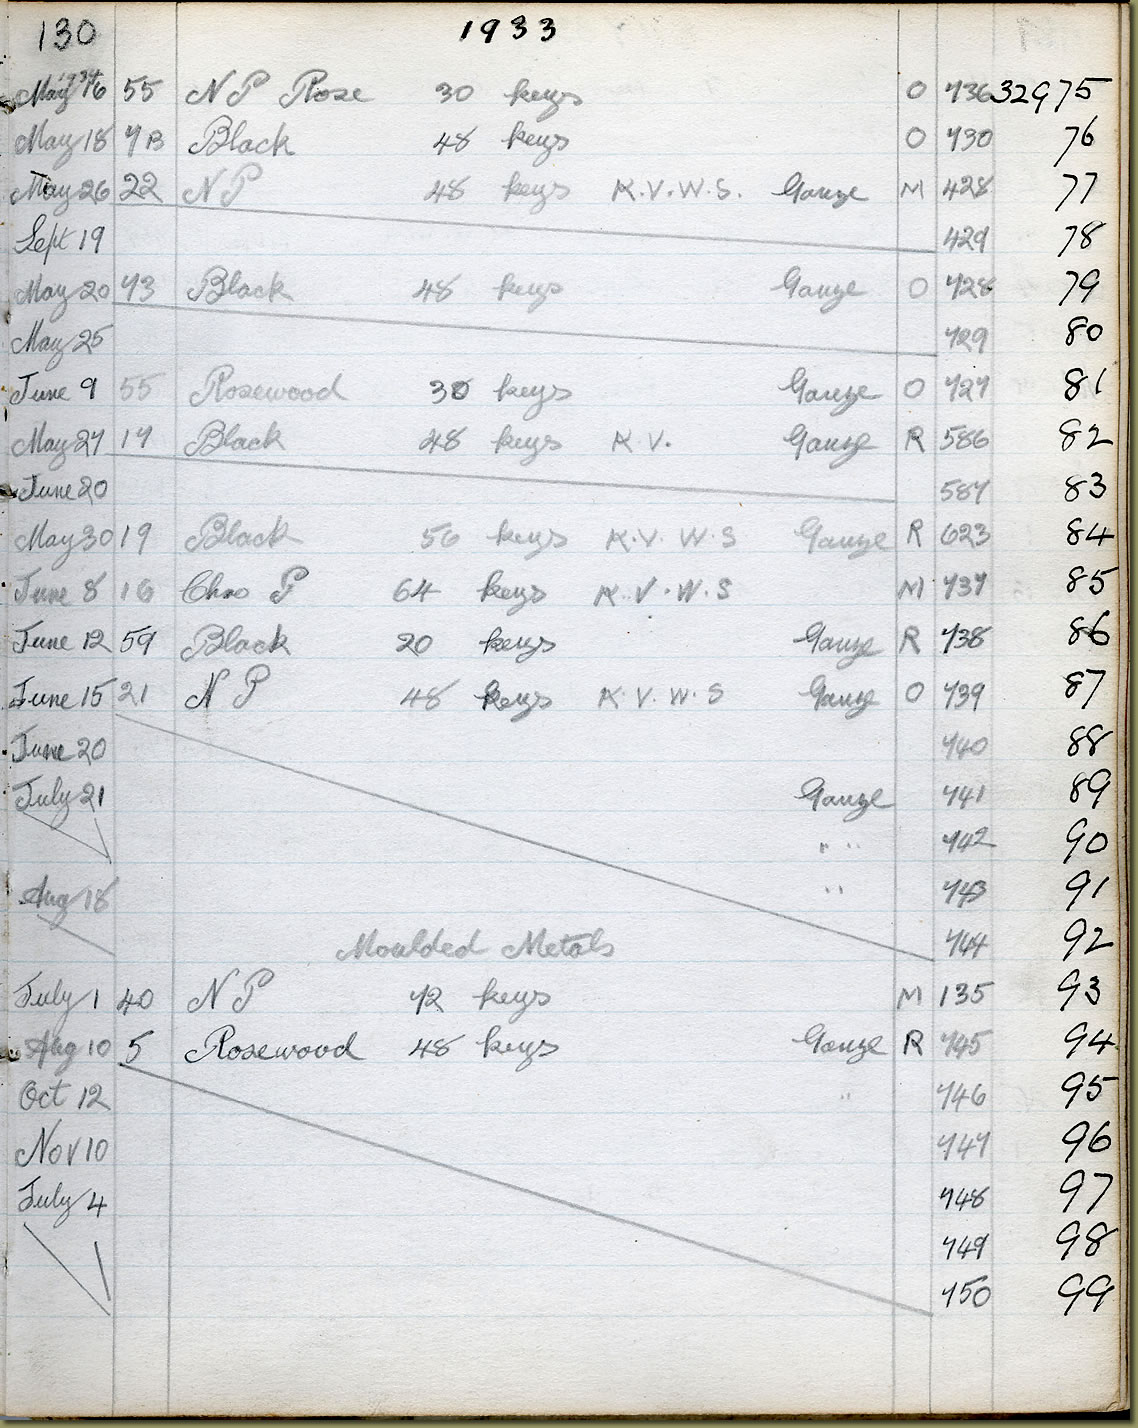 130 1933
May 16 1934 55 N P Rose 30 keys O 736 32975
May 18 7B Black 48 keys O 730 76
May 26 22 N P 48 keys K.V.W.S. Gauze M 428 77
Sept 19 429 78
May 20 73 Black 48 keys Gauze O 728 79
May 25 729 80
June 9 55 Rosewood 30 keys Gauze O 727 81
May 27 17 Black 48 keys K.V. Gauze R 586 82
June 20 587 83
May 30 19 Black 56 keys K.V. W.S Gauze R 623 84
June 8 16 Chro P 64 keys K.V.W.S M 737 85
June 12 59 Black 20 keys Gauze R 738 86
June 15 21 N P 48 keys K.V.W.S Gauze O 739 87
June 20 740 88
July 21 Gauze 741 89
" " 742 90
Aug 18 " 743 91
Moulded Metals 744 92
July 1 40 N P 72 keys M 135 93
Aug 10 5 Rosewood 48 keys Gauze R 745 94
Oct 12 " 746 95
Nov 10 747 96
July 4 748 97
749 98
750 99